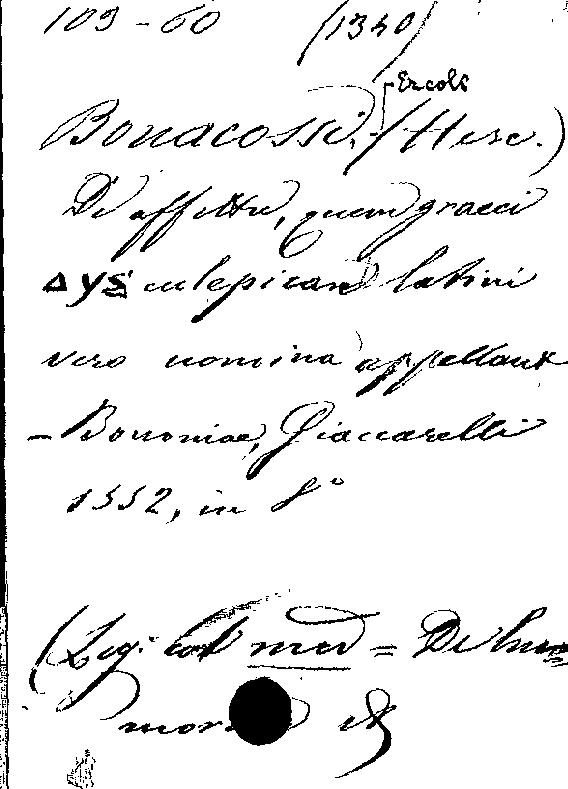 109-60 (1340)
Ercole
Bonacossi, (Herc.)
De affectu, quem graeci
Δys culepicand latini
vero nomina appellant
- Bononiae, Giaccarelli
1552, in 8°
(Leg. col med = De hu=
mor. &